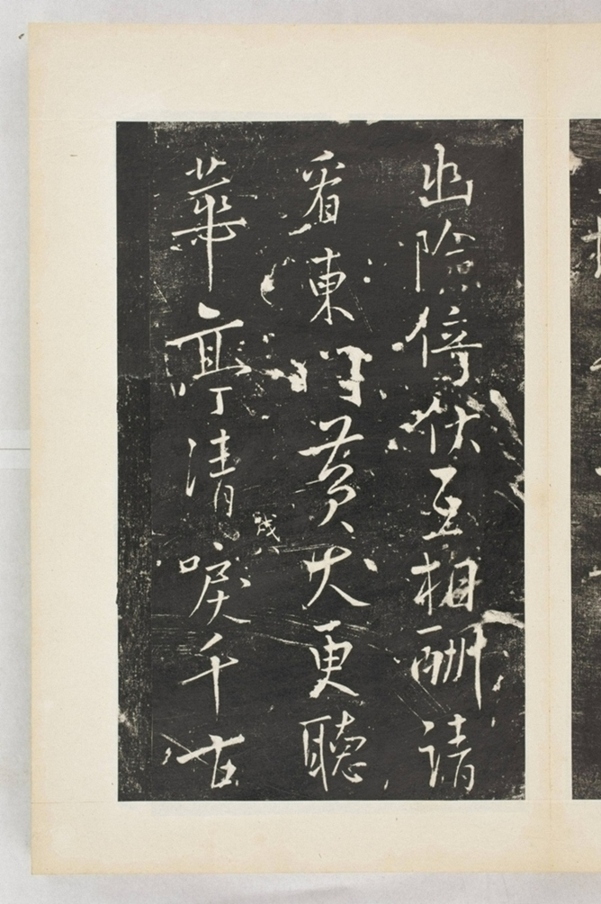 幽險倚伏互相酬請
看東門黃犬更聽
華亭清唳千古